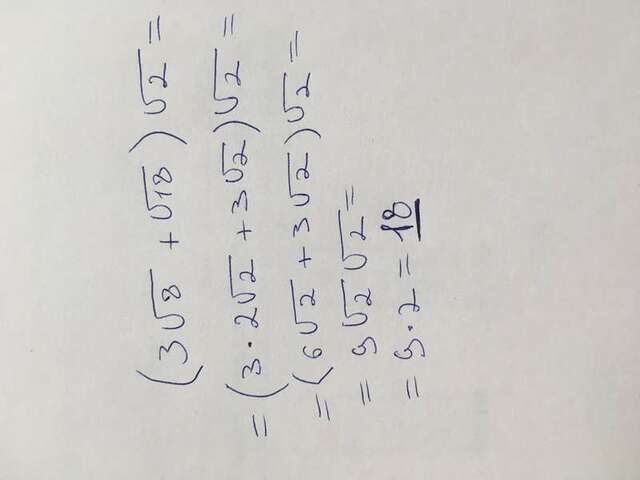 (3√8 + √18) √2 =
= (3 · 2√2 + 3√2) √2 =
= (6√2 + 3√2) √2 =
= 9√2 √2 =
= 9 · 2 = 18